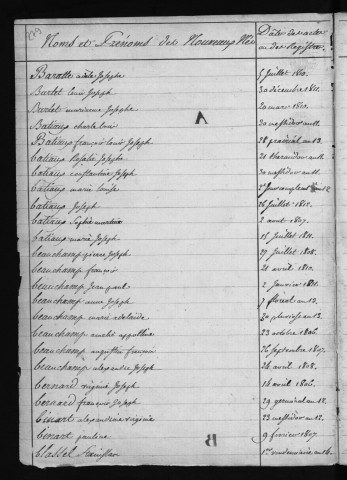 Noms et Prénoms des Nouveaux Nés
Dates des actes
ou des Registres
Baratte Joseph 5 Juillet 1810.
Burlet louis Joseph 30 décembre 1811.
Burlet marianne Josephe 20 mars 1810.
A
Batiaux charle louis 20 messidor an 11.
Batiaux françois louis Joseph 28 prairial an 13.
batiaux Rosalie Josephe 21 thermidor an 11.
batiaux constantine Joseph 30 messidor an 11.
batiaux marie louise an 12
batiaux Joseph 26 Juillet 1812.
batiaux Sophie 2 aout 1817.
batiaux marie Joseph 15 Juillet 1811.
beauchamp pierre Joseph 29 Juillet 1808.
beauchamp françois 21 avril 1810.
beauchamp Jean paul 2 Janvier 1821.
beauchamp anne Joseph 7 floréal an 13.
beauchamp marie adelaide 20 pluviose an 13.
beauchamp amelie appolline 23 octobre 1806.
beauchamp augustin françois 26 septembre 1807.
beauchamp alexandre Joseph 26 avril 1818.
bernard virginie Joseph 16 avril 1806.
bernard françois Joseph 29 germinal an 12.
bénart alexandrine virginie 23 messidor an 12.
B
bénart pauline 9 février 1807.
blassel 1er vendemiaire an 16.